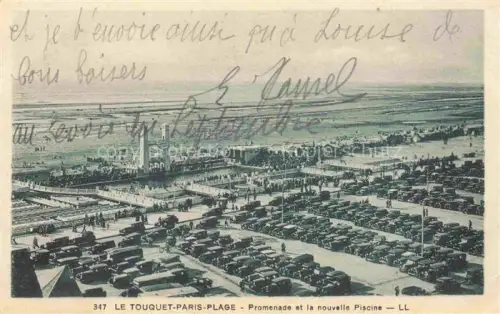 et je t'envoie ainsi qu'à Louise de
bons baisers
E. Hamel
au revoir Septembre
347 LE TOUQUET-PARIS-PLAGE - Promenade et la nouvelle Piscine — LL